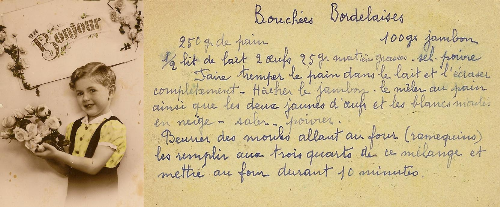 un
Bonjour
Bouchées Bordelaises
250 gr de pain 100 gr jambon
1/2 lit de lait 2 œufs, 25 gr matière grasse - sel. poivre
Faire tremper le pain dans le lait et l'écraser
complètement - Hâcher le jambon. le mêler au pain
ainsi que les deux jaunes d'œufs et les blancs montés
en neige - saler - poivrer.
Beurrer des moules allant au four (ramequins)
les remplir aux trois quarts de ce mélange et
mettre au four durant 10 minutes